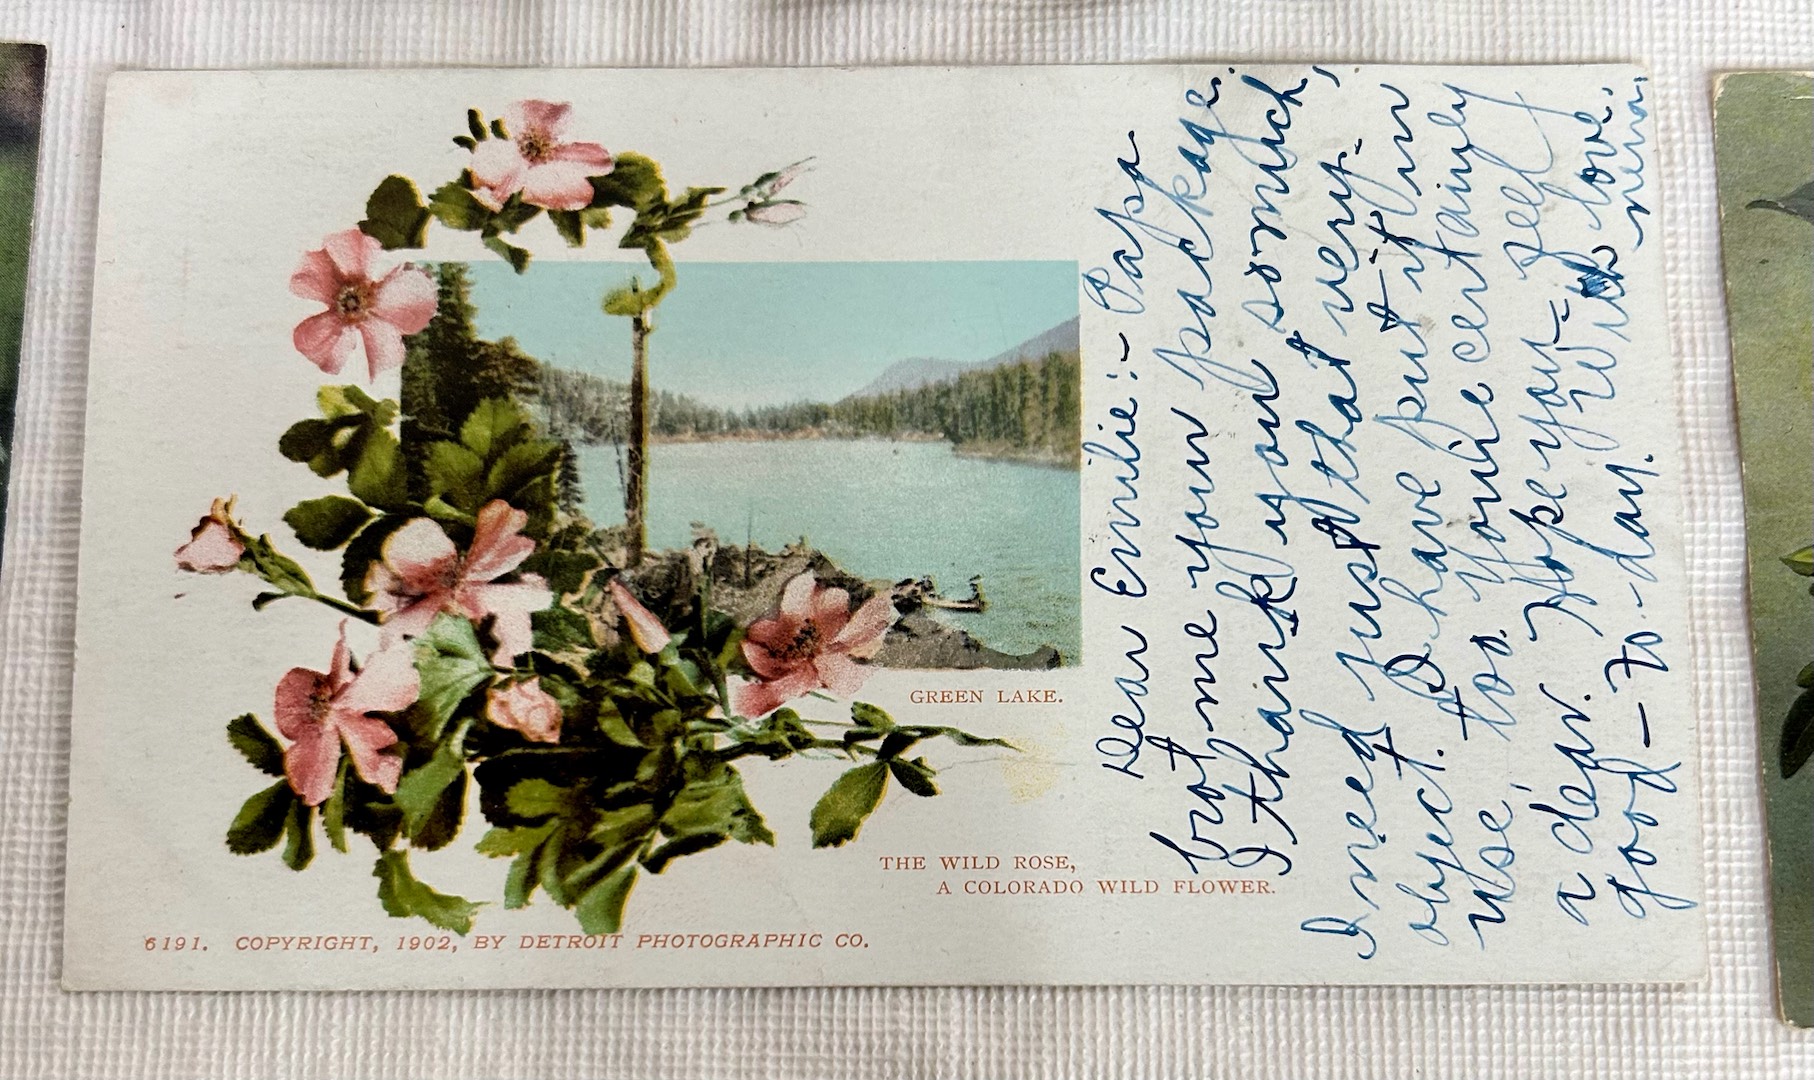 GREEN LAKE.
THE WILD ROSE,
A COLORADO WILD FLOWER.
6191. COPYRIGHT, 1902, BY DETROIT PHOTOGRAPHIC CO.
Dear Emilie:- Papa
brot me your package.
I thank you somuch,
I need just that very-
object. I have put it in
use, too. You're certainly
a dear. Hope you feel
good-to-day. With love.